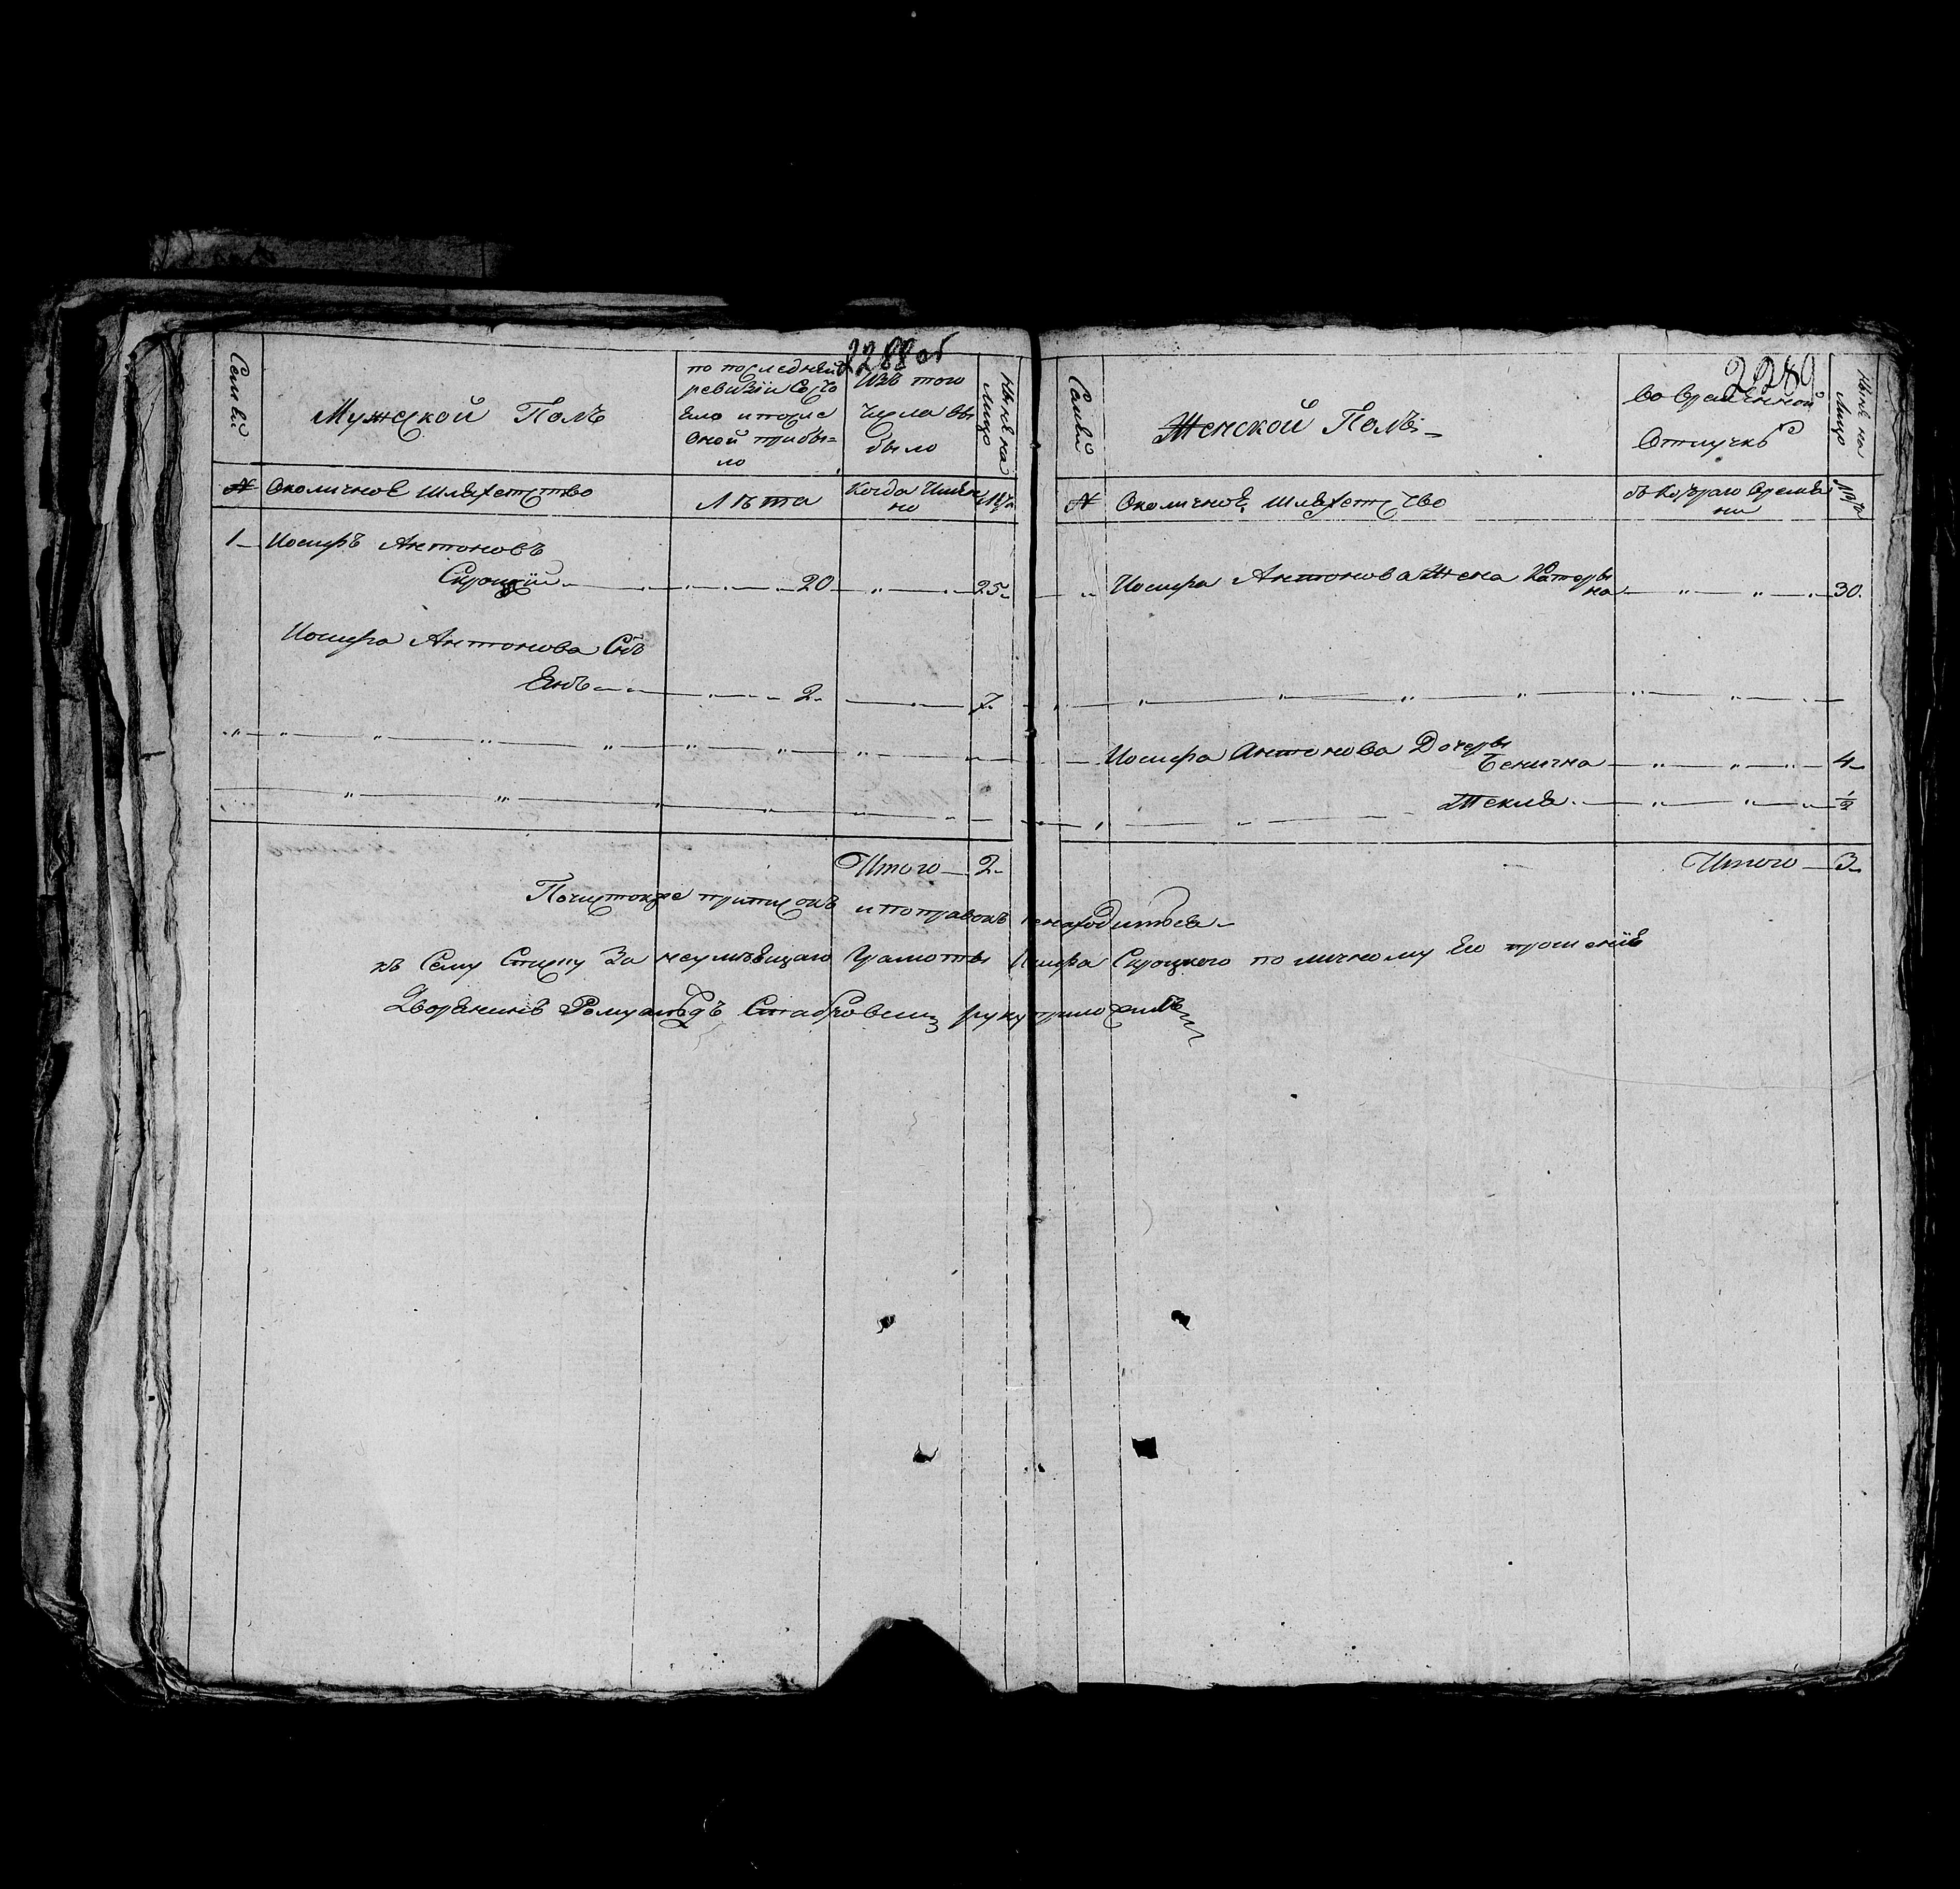 2288 об
Семьи
Мужской Полъ
по последней
ревизіи Состо
яло и после
оной прибы=
ло
Изъ того
числа вы
было
Ныне на
лицо
№ Околичное шляхетство
Лета
Когда Имян
но
Лета
1 Иосифъ Антоновъ
Скроцкій 20 25
Иосифа Антонова Снъ
Янъ 2 7
Итого 2
2289
Семьи
Женской Полъ
Во временной
Отлучке
Ныне на
лицо
№ Околичное шляхетство
съ Котораго Време
ни
Лета
Иосифа Антонова Жена Катеры
на 30
Иосифа Антонова Дочеры
4
Текля ½
Итого 3
По чистокре приписокъ и поправокъ ненаходитъся
къ Сему Списку За неумеющаго Грамоты Иосифа Скроцкого по личному Его прошенію
Дворянинъ Ромуальдъ руку приложилъ